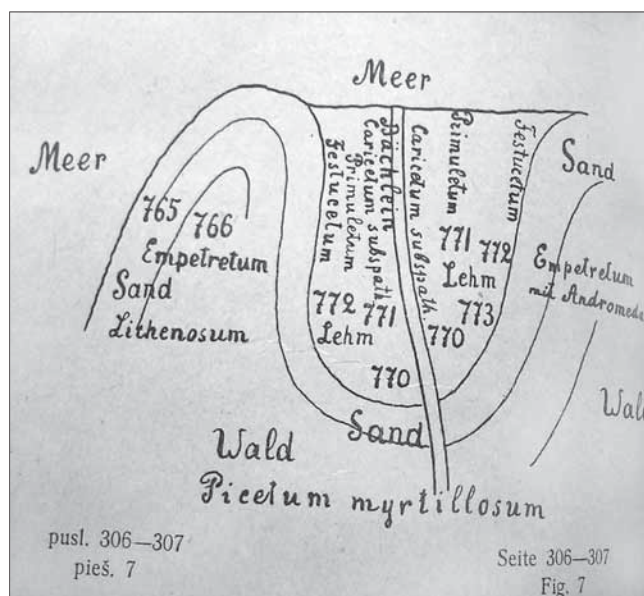 Meer
Meer
Sand
765
766
Empetretum
Sand
Lithenosum
Festucetum
Primuletum
Caricetum subspath.
Bächlein
Caricetum subspath.
Primuletum
Festucetum
772
771
Lehm
770
771
772
Lehm
773
770
Empetretum
mit Andromeda
Sand
Wald
Picetum myrtillosum
pusl. 306—307
pieš. 7
Seite 306—307
Fig. 7